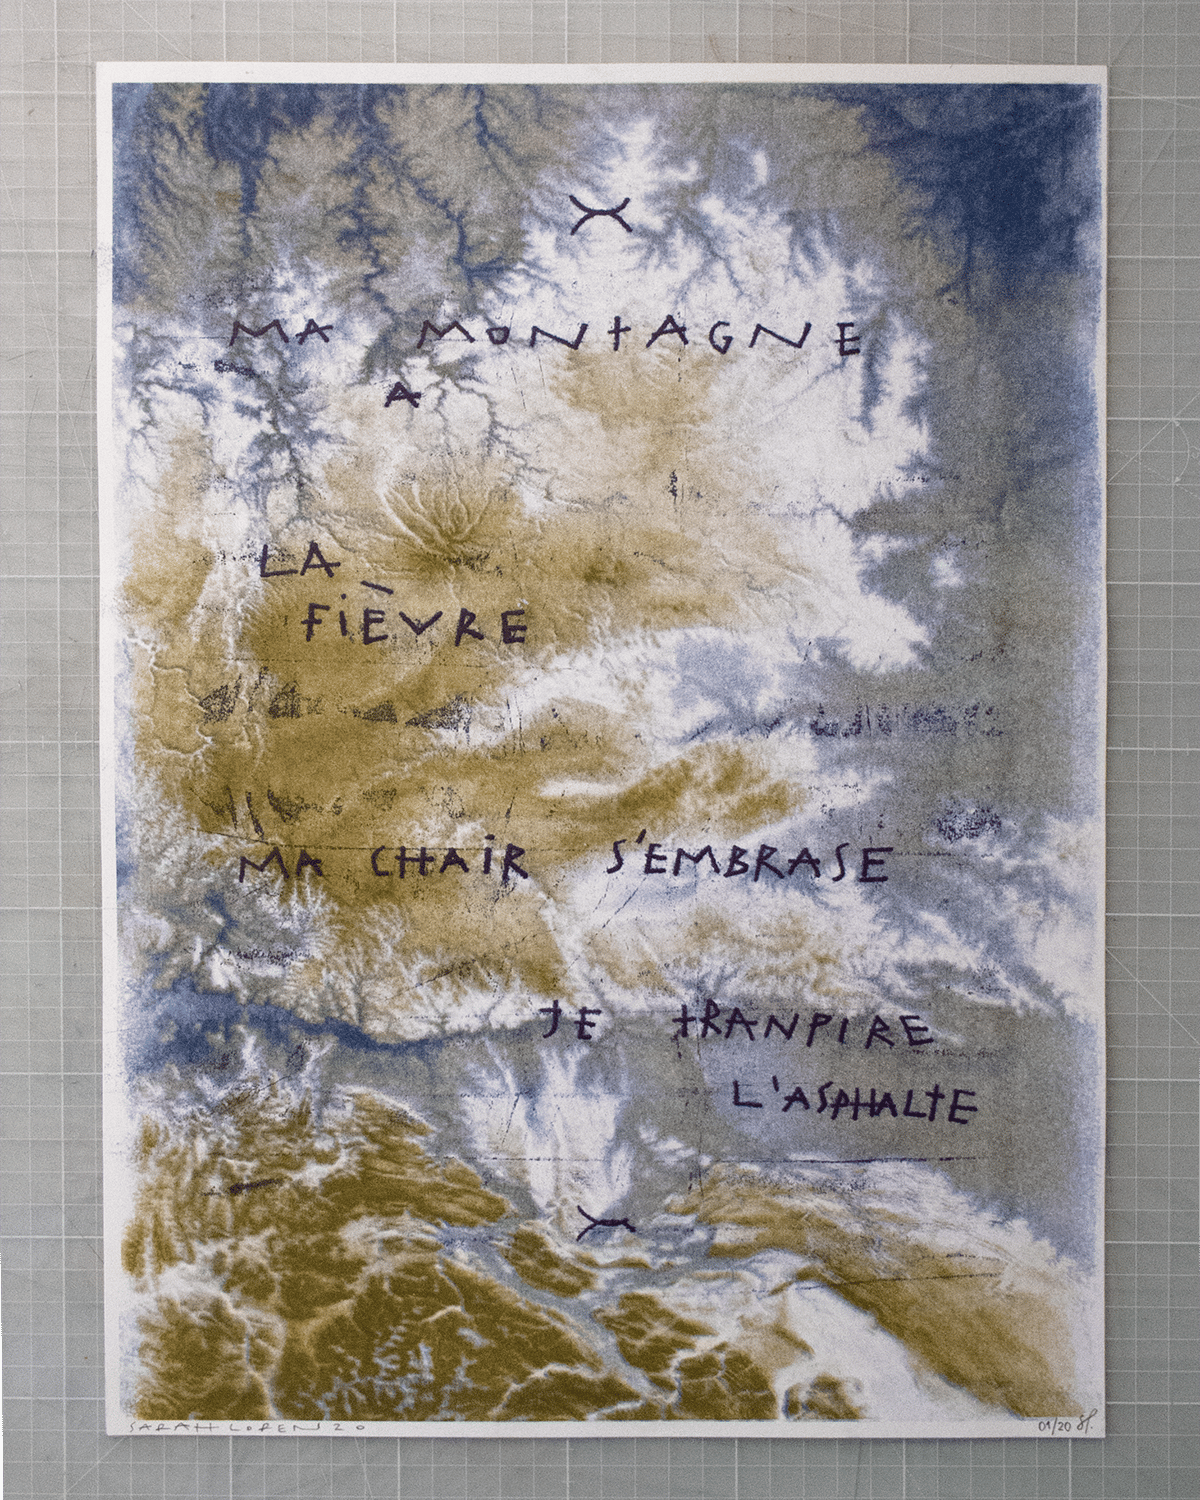 MA MONTAGNE
A
LA
FIÈVRE
MA CHAIR S'EMBRASE
JE TRANPIRE
L'ASPHALTE
SARAH LOREN 20
01/20